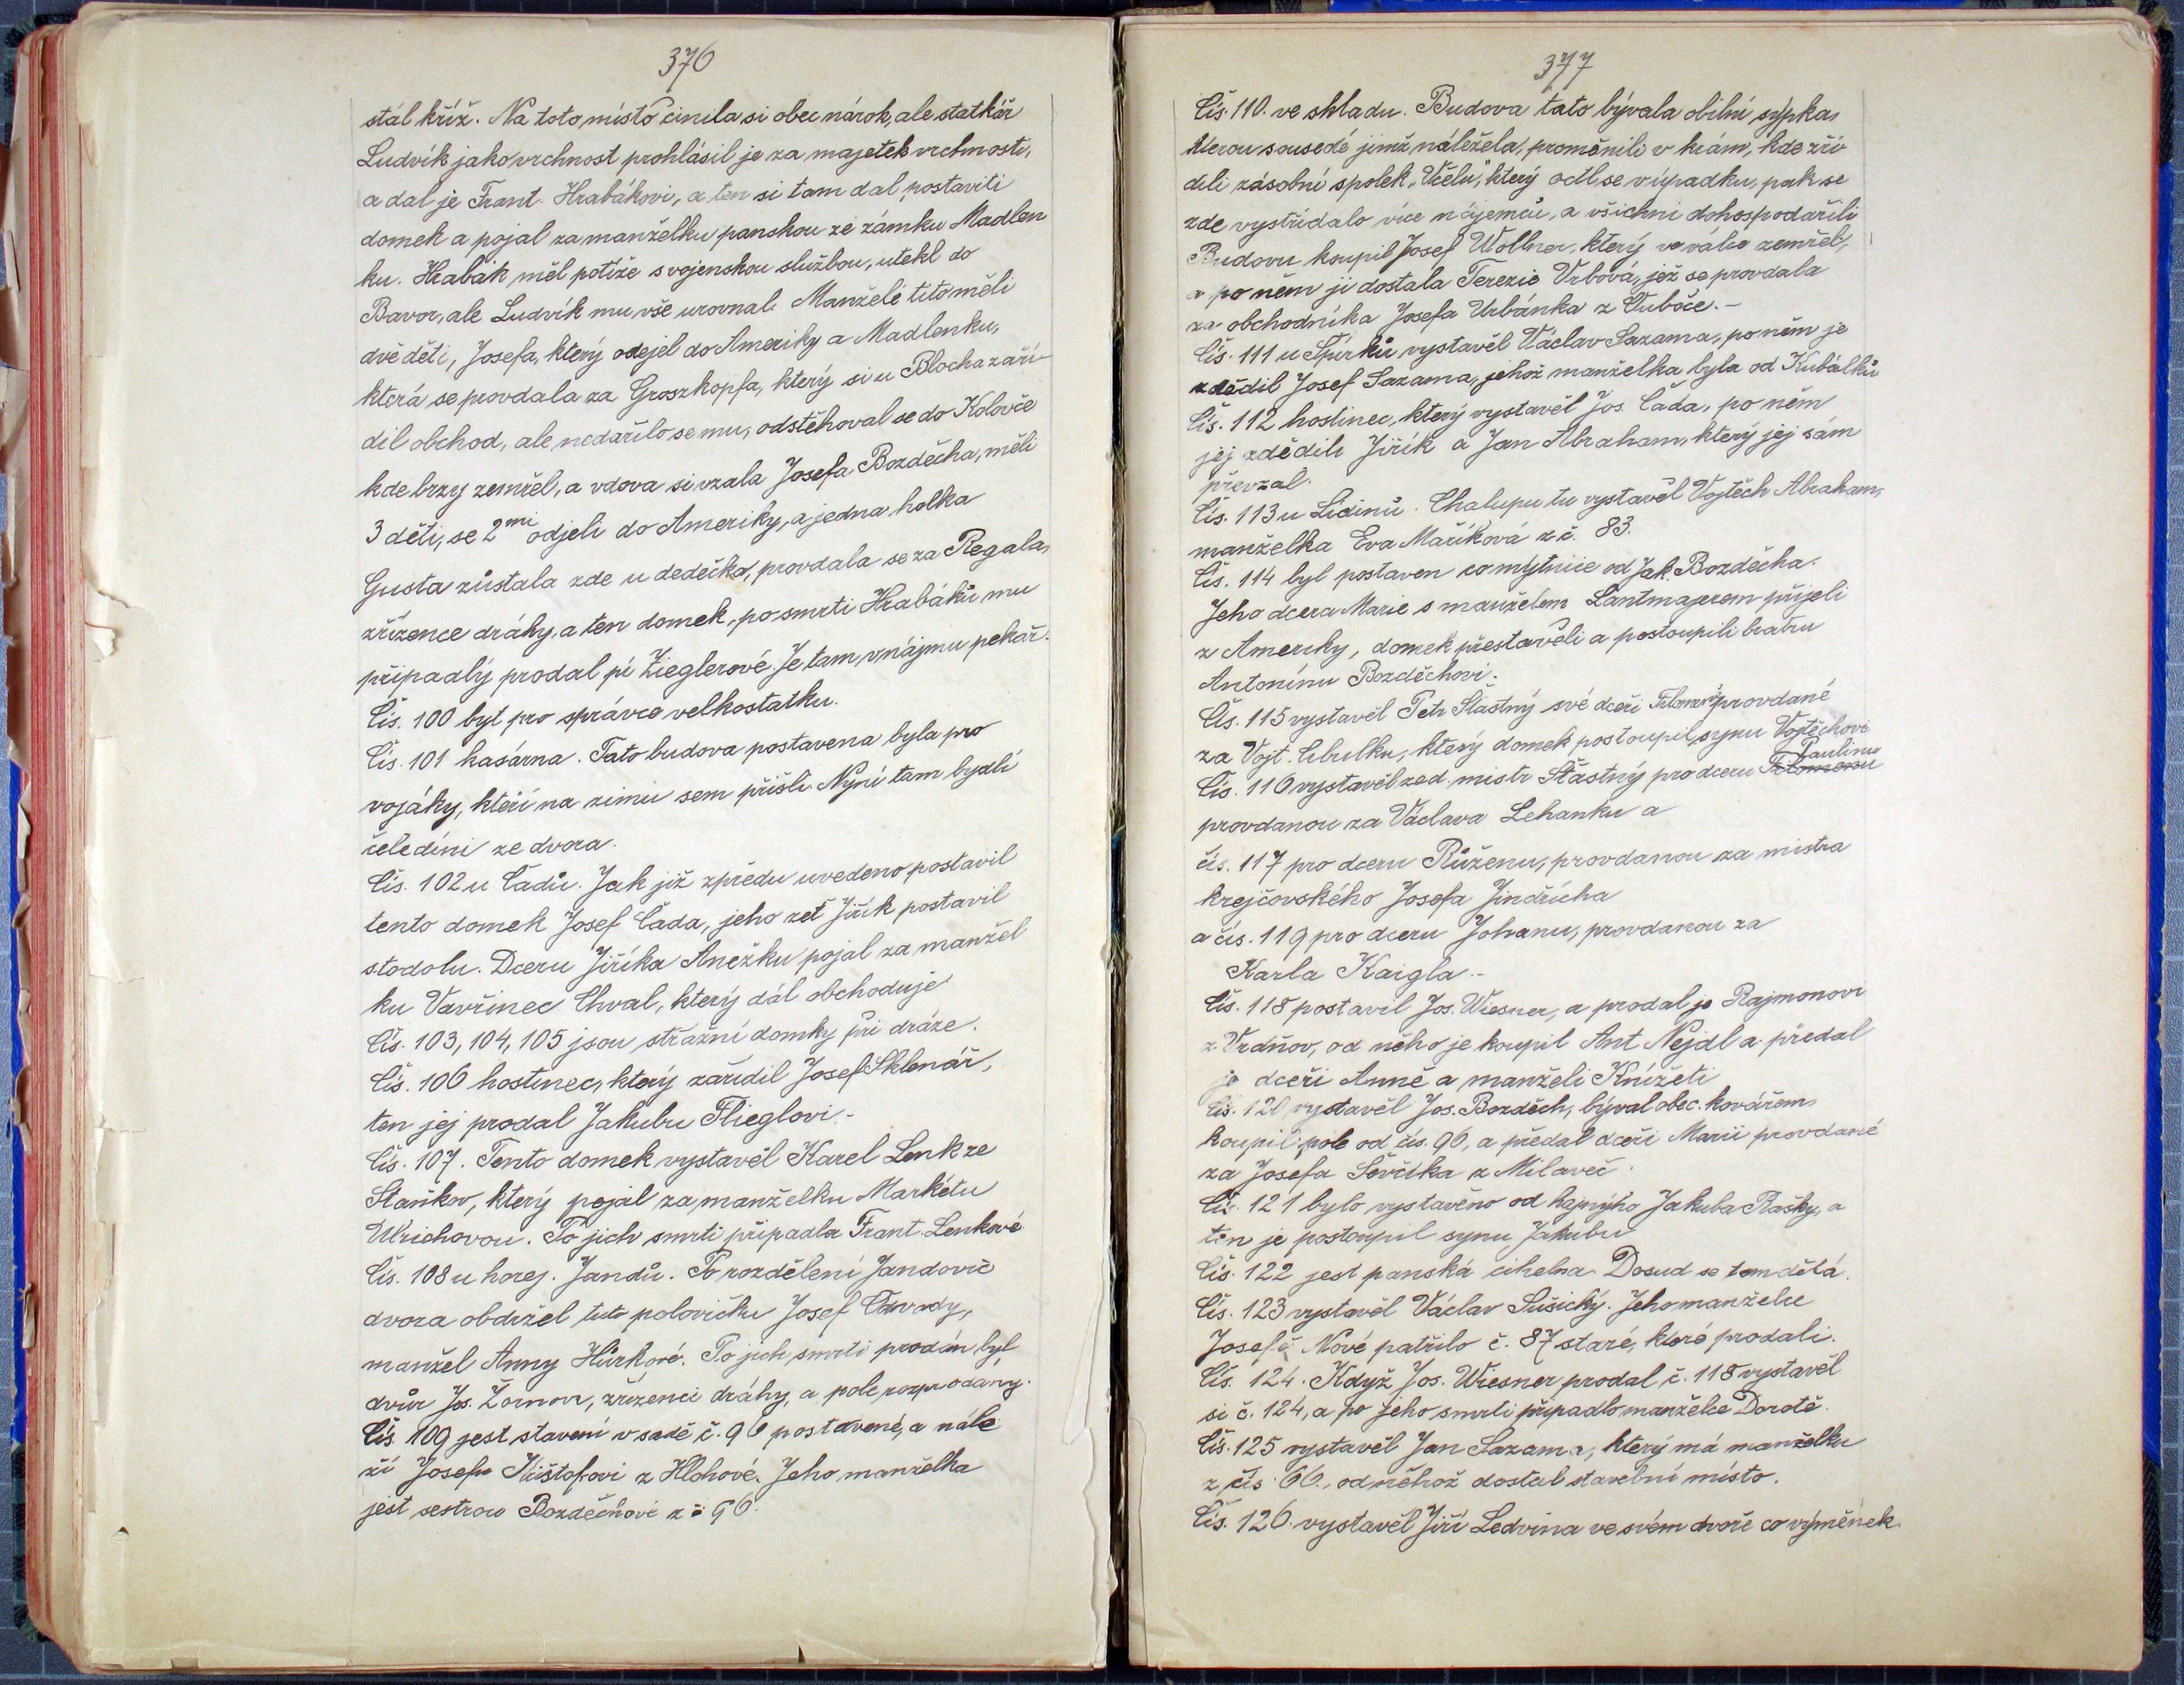 376
stál kříž. Na toto místo činila si obec nárok, ale statkář
Ludvík jako vrchnost prohlásil je za majetek vrchnosti,
a dal je Frant. Hrabákovi, a ten si tam dal postaviti
domek a pojal za manželku panskou ze zámku Madlen
ku. Hrabák měl potíže s vojenskou službou, utekl do
Bavor, ale Ludvík mu vše urovnal. Manželé tito měli
dvě děti, Josefa, který odejel do Ameriky a Madlenku,
která se provdala za Groszkopfa, který si u Blocha zaří-
dil obchod, ale nedařilo se mu, odstěhoval se do Kolovče
kde brzy zemřel, a vdova si vzala Josefa Bozděcha, měli
3 děti, se 2mi odjeli do Ameriky, a jedna holka
Gusta zůstala zde u dedečka, provdala se za Regala,
zřízence dráhy, a ten domek, po smrti Hrabáků mu
připadlý prodal pí Zieglerové. Je tam v nájmu pekař.
Čís. 100 byt pro správce velkostatku.
Čís. 101 kasárna. Tato budova postavena byla pro
vojáky, kteří na zimu sem přišli. Nyní tam bydlí
čeledíni ze dvora.
Čís. 102 u Čadů. Jak již zpředu uvedeno postavil
tento domek Josef Čada, jeho zeť Jiřík postavil
stodolu. Dceru Jiříka Anežku pojal za manžel
ku Vavřinec Chval, který dál obchoduje
Čís. 103, 104, 105 jsou strážní domky při dráze.
Čís. 106 hostinec, který zařídil Josef Sklenář,
ten jej prodal Jakubu Flieglovi.-
Čís. 107. Tento domek vystavěl Karel Lenk ze
Staňkov, který pojal za manželku Markétu
Ulrichovou. Po jich smrti připadla Frant. Lenkové
Čís. 108 u horej. Jandů. Po rozdělení Jandovic
dvora obdržel tuto polovičku Josef Odvody,
manžel Anny Hůrkové. Po jich smrti prodán byl
dvůr Jos. Žornovi, zřízenci dráhy, a pole rozprodány.
Čís. 109 jest stavení v sadě č. 96 postavené, a nále
ží Josefu Krištofovi z Hlohové. Jeho manželka
jest sestrou Bozděchové z č. 96.
377
Čís. 110. ve skladu. Budova tato bývala obilní sýpka,
kterou sousedé jimž náležela, proměnili v krám, kde zří
dili zásobní spolek „Včelu", který octl se v úpadku, pak se
zde vystřídalo více nájemců, a všichni dohospodařili
Budovu koupil Josef Wollner, který ve válce zemřel,
a po něm ji dostala Terezie Vrbová, jež se provdala
za obchodníka Josefa Urbánka z Úboče.-
Čís. 111 u Špirků vystavěl Václav Sazama, po něm je
zdědil Josef Sazama, jehož manželka byla od Kubálků
Čís. 112 hostinec, který vystavěl Jos. Čada, po něm
jej zdědili Jiřík a Jan Abraham, který jej sám
převzal.
Čís. 113 u Lidinů. Chalupu tu vystavěl Vojtěch Abraham,
manželka Eva Maříková z č. 83.
Čís. 114 byl postaven co mýtnice od Jak. Bozděcha.
Jeho dcera Marie s manželem Lantmajerem přijeli
z Ameriky, domek přestavěli a postoupili bratru
Antonínu Bozděchovi.
Čís. 115 vystavěl Petr Šťastný své dceři Filoméně provdané
za Vojt. Cibulku, který domek postoupil synu Vojtěchovi
Paulinu
Čís. 116 vystavěl zed. mistr Šťastný pro dceru Filomenu
provdanou za Václava Lehanku a
čís. 117 pro dceru Růženu, provdanou za mistra
krejčovského Josefa Jindřicha
a čís. 119 pro dceru Johanu, provdanou za
Karla Kaigla.-
Čís. 118 postavil Jos. Wiesner, a prodal je Rajmonovi
z Srdňov, od něho je koupil Ant Nejdl a předal
je dceři Anně a manželi Knížeti
Čís. 120 vystavěl Jos. Bozděch, býval obec. kovářem,
koupil pole od čís. 96, a předal dceři Marii provdané
za Josefa Ševčíka z Milaveč.
Čís. 121 bylo vystavěno od hajnýho Jakuba Rašky, a
ten je postoupil synu Jakubu
Čís. 122 jest panská cihelna. Dosud se tam dělá.
Čís. 123 vystavěl Václav Sušický. Jeho manželce
Josefě Nové patřilo č. 87 staré, které prodali.
Čís. 124. Když Jos. Wiesner prodal č. 118 vystavěl
si č. 124, a po jeho smrti připadlo manželce Dorotě.
Čís. 125 vystavěl Jan Sazama, který má manželku
z čís 66., od něhož dostal stavební místo.
Čís. 126. vystavěl Jiří Ledvina ve svém dvoře co výměnek.